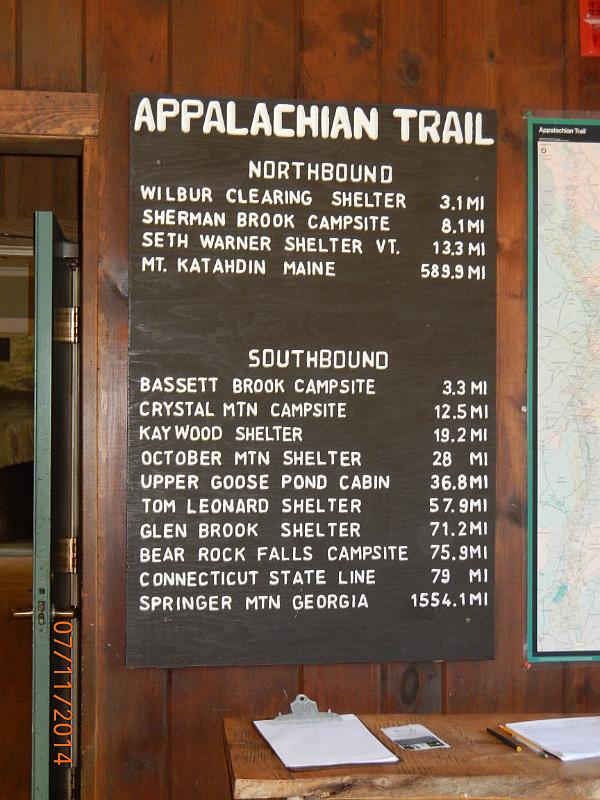 APPALACHIAN TRAIL
NORTHBOUND
WILBUR CLEARING SHELTER 3.1 MI
SHERMAN BROOK CAMPSITE 8.1 MI
SETH WARNER SHELTER VT. 13.3 MI
MT. KATAHDIN MAINE 589.9 MI
SOUTHBOUND
BASSETT BROOK CAMPSITE 3.3 MI
CRYSTAL MTN CAMPSITE 12.5 MI
KAY WOOD SHELTER 19.2 MI
OCTOBER MTN SHELTER 28 MI
UPPER GOOSE POND CABIN 36.8 MI
TOM LEONARD SHELTER 57.9 MI
GLEN BROOK SHELTER 71.2 MI
BEAR ROCK FALLS CAMPSITE 75.9 MI
CONNECTICUT STATE LINE 79 MI
SPRINGER MTN GEORGIA 1554.1 MI
Appalachian Trail
07/11/2014